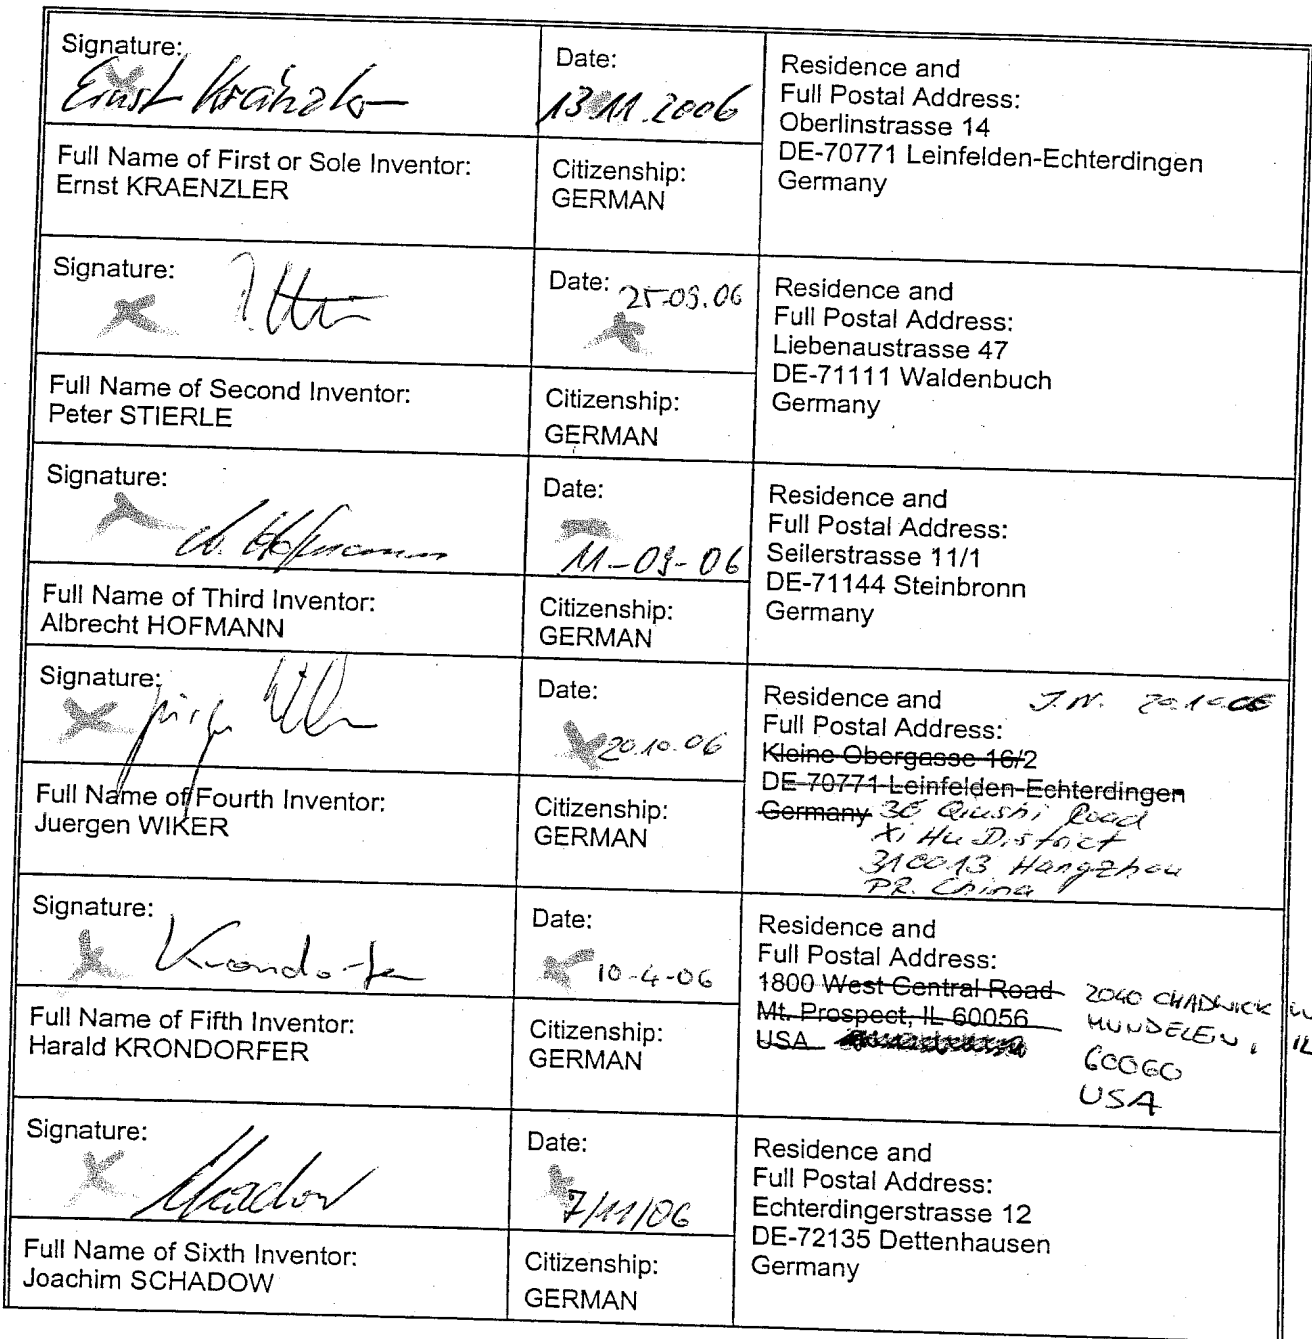 Signature:
Ernst Kränzler
Date:
13.11.2006
Residence and
Full Postal Address:
Oberlinstrasse 14
DE-70771 Leinfelden-Echterdingen
Germany
Full Name of First or Sole Inventor:
Ernst KRAENZLER
Citizenship:
GERMAN
Signature:
Date: 25-09.06
Residence and
Full Postal Address:
Liebenaustrasse 47
DE-71111 Waldenbuch
Germany
Full Name of Second Inventor:
Peter STIERLE
Citizenship:
GERMAN
Signature:
A. Hofmann
Date:
11-09-06
Residence and
Full Postal Address:
Seilerstrasse 11/1
DE-71144 Steinbronn
Germany
Full Name of Third Inventor:
Albrecht HOFMANN
Citizenship:
GERMAN
Signature:
Date:
20.10.06
Residence and J.W. 20.10.06
Full Postal Address:
Kleine Obergasse 16/2
DE-70771 Leinfelden-Echterdingen
Germany 36 Qiushi Road
Xi Hu District
310013 Hangzhou
PR. China
Full Name of Fourth Inventor:
Juergen WIKER
Citizenship:
GERMAN
Signature:
Krondorfer
Date:
10-4-06
Residence and
Full Postal Address:
1800 West Central Road 2040 CHADWICK
Mt. Prospect, IL 60056 MUNDELEIN, IL
USA 60060
USA
Full Name of Fifth Inventor:
Harald KRONDORFER
Citizenship:
GERMAN
Signature:
Schadow
Date:
7/11/06
Residence and
Full Postal Address:
Echterdingerstrasse 12
DE-72135 Dettenhausen
Germany
Full Name of Sixth Inventor:
Joachim SCHADOW
Citizenship:
GERMAN